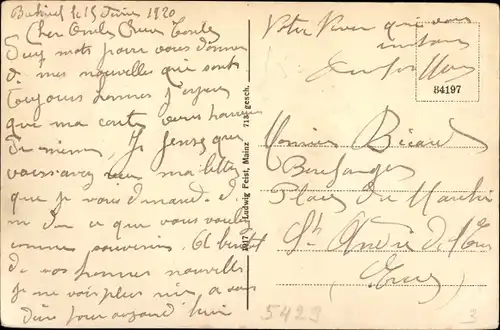 le 15 Juin 1920
Cher Oncle Chere Tante
mots pour vous donner
de mes nouvelles qui sont
toujours bonnes j'espere
que ma carte vous
de meme, Je pense que
vous avez ma lettre
que je vous
ce que vous voulez
comme souvenir. A bientot
de vos bonnes nouvelles
Je ne vois plus rien a vous
dire pour aujourd'hui
Votre Neveu qui vous
84197
Monsieur Bicard
Boulanger
Place du Marché
St André de l'Eure
Eure
Ludwig Feist, Mainz 713 gesch.
5429
3